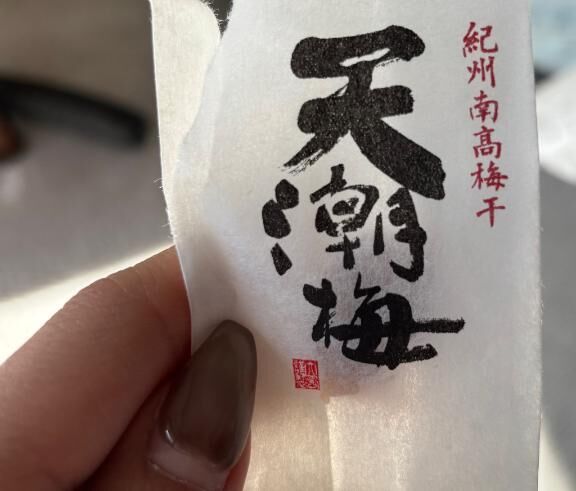 紀州南高梅干
天潮梅